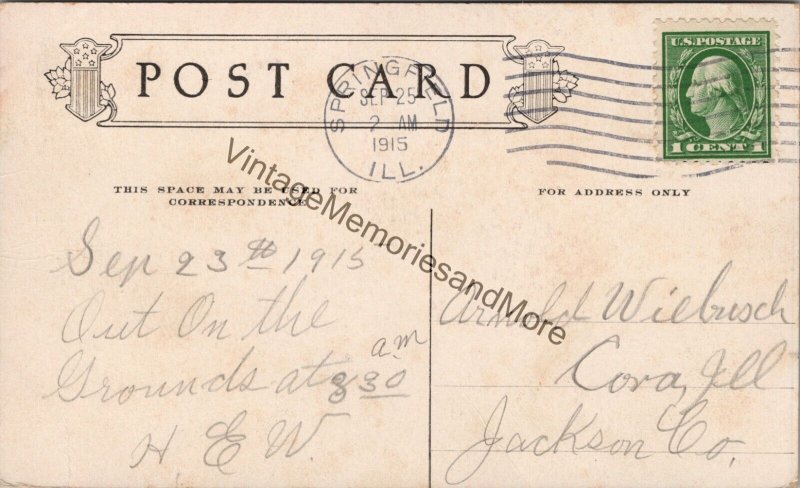 POST CARD
SPRINGFIELD
SEP 25
2 AM
1915
ILL.
U.S. POSTAGE
1 CENT 1
THIS SPACE MAY BE USED FOR
CORRESPONDENCE
FOR ADDRESS ONLY
VintageMemoriesandMore
Sep 23th 1915
Out On the
Grounds at 8 30 a.m
H. E. W.
Arnold Wiebusch
Cora, Ill
Jackson Co.